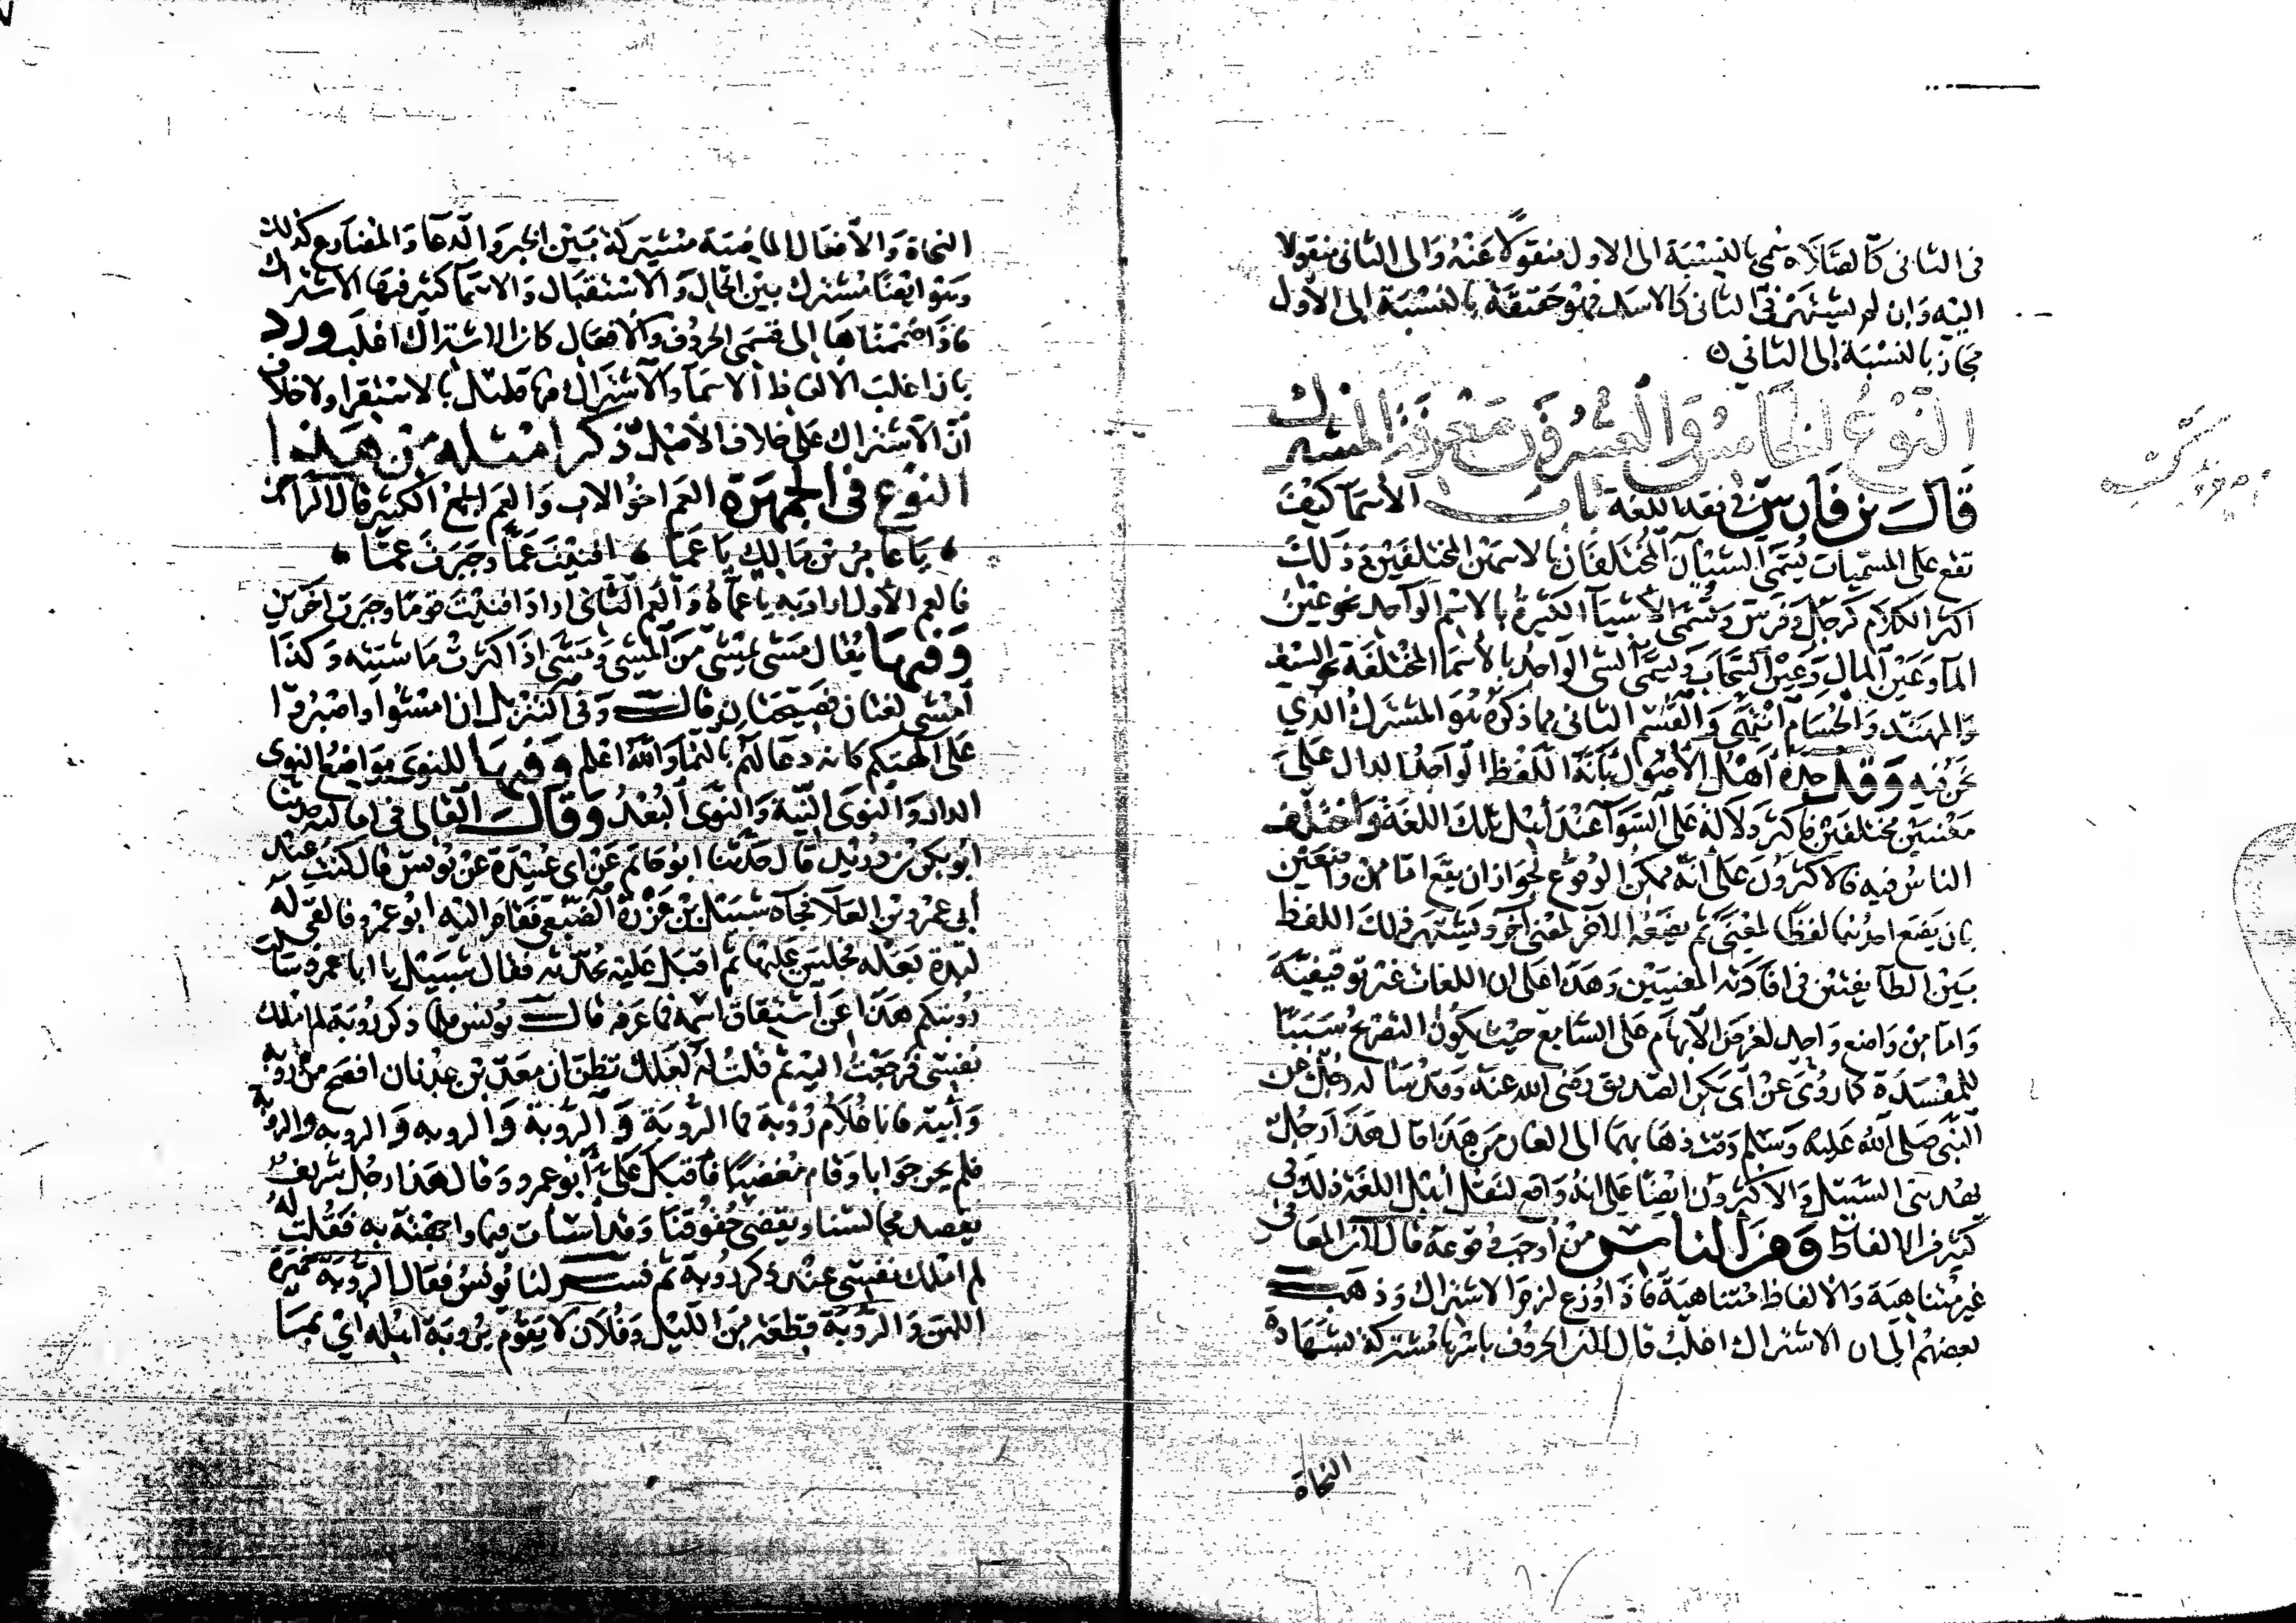 في الثاني كالصلاة سمي بالنسبة الى الاول منقولا عنه والى الثاني منقولا
اليه وان لم يشتهر في الثاني كالاسد فهو حقيقة بالنسبة الى الاول
مجاز بالنسبة الى الثاني ه
النوع الخامس والعشرون معرفة المشترك
قال بن فارس في فقه اللغة باب الاسما كيف
تقع على المسميات يسمى الشيآن المختلفان بالاسمين المختلفين وذلك
اكثر الكلام كرجل وفرس وتسمى الاشيآ الكثيرة بالاسم الواحد نحو عين
المآ وعين المال وعين السحاب ويسمى الشي الواحد بالأسما المختلفة نحو السيف
والمهند والحسام انتهى والقسم الثاني مما ذكره هو المشترك الذي
نحن فيه وقد حده اهل الأصول بأنه اللفظ الواحد الدال على
معنيين مختلفين فاكثر دلالة على السوآ عند أهل تلك اللغة واختلف
الناس فيه فالاكثرون على انه ممكن الوقوع لجواز ان يقع اما من واضعين
بان يضع احدهما لفظا لمعنى ثم يضعه الآخر لمعنى آخر ويشتهر ذلك اللفظ
بين الطآيفتين في افادته المعنيين وهذا على ان اللغات غير توقيفية
واما من واضع واحد لغرض الابهام على السامع حيث يكون التصريح سببا
للمفسدة كما روي عن ابي بكر الصديق رضي الله عنه وقد سأله رجل عن
النبي صلى الله عليه وسلم وقت ذهابهما الى الغار من هذا قال هذا رجل
يهديني السبيل والاكثرون ايضا على انه واقع لنقل أهل اللغة ذلك في
كثير من الالفاظ ومن الناس من أوجب وقوعه قال لان المعاني
غير متناهية والالفاظ متناهية فاذا وزع لزم الاشتراك وذهب
بعضهم الى ان الاشتراك اغلب قال لان الحروف باسرها مشتركة بشهادة
النحاة
النحاة والأفعال الماضية مشتركة بين الخبر والدعا والمضارع كذلك
وهو ايضا مشترك بين الحال والاستقبال والاسما كثير فيها الاشتراك
فاذا ضممناها الى قسمي الحروف والافعال كان الاشتراك اغلب ورد
بان اغلب الالفاظ الاسمآ والاشتراك فيها قليل بالاستقرا ولا خلاف
أن الاشتراك على خلاف الأصل ذكر امثله من هذا
النوع في الجمهرة العم اخو الاب والعم الجمع الكثير قال الراجز
يا عامر بن مالك يا عما افنيت عما وجبرت عما
فالعم الأول اراد به يا عماه والعم الثاني اراد افنيت قوما وجبرت اخرين
وفيها يقال مشى يمشي من المشي ومشى اذا كثرت ماشيته وكذا
امشى لغتان فصيحتان قال وفي التنزيل ان امشوا واصبروا
على آلهتكم كانه دعا لهم بالنما والله اعلم وفيها للنوى مواضع النوى
الدار والنوى النية والنوى البعد وقال القالي في اماليه حدثنا
أبو بكر بن دريد قال حدثنا ابو حاتم عن ابي عبيدة عن يونس قال كنت عند
أبي عمرو بن العلا فجآه شبيل بن عزرة الضبعي فقام اليه ابو عمرو فالقى له
لبدة بغله فجلس عليها ثم اقبل عليه يحدثه فقال شبيل يا ابا عمرو سالت
رؤبتكم هذا عن اشتقاق اسمه فما عرفه قال يونس فلما ذكر رؤبة لم املك
نفسي فرجعت اليه ثم قلت له لعلك تظن ان معد بن عدنان افصح من رؤبة
وأبيه فانا غلام رؤبة فما الروبة والروبة والروبه والروبه والرؤبة
فلم يحر جوابا وقام مغضبا فأقبل علي أبو عمرو وقال هذا رجل شريف
يقصد مجالسنا ويقضي حقوقنا وقد أسأت فيما واجهته به فقلت له
لم املك نفسي عند ذكر رؤبة ثم فسر لنا يونس فقال الروبة خميرة
اللبن والروبة قطعة من الليل وفلان لا يقوم بروبة اهله اي بما